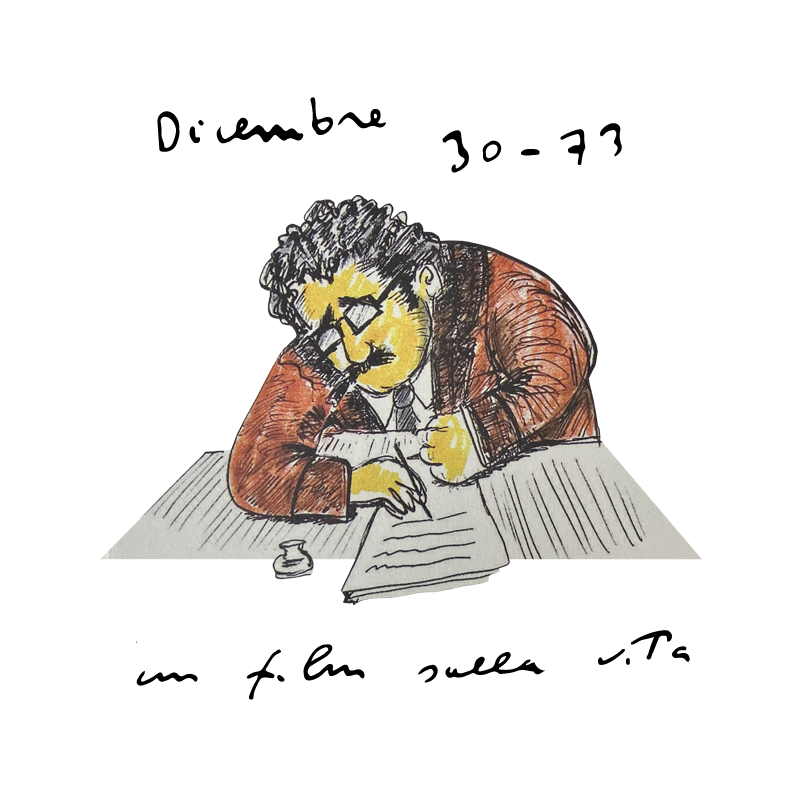 Dicembre 30-73
un film sulla viTa